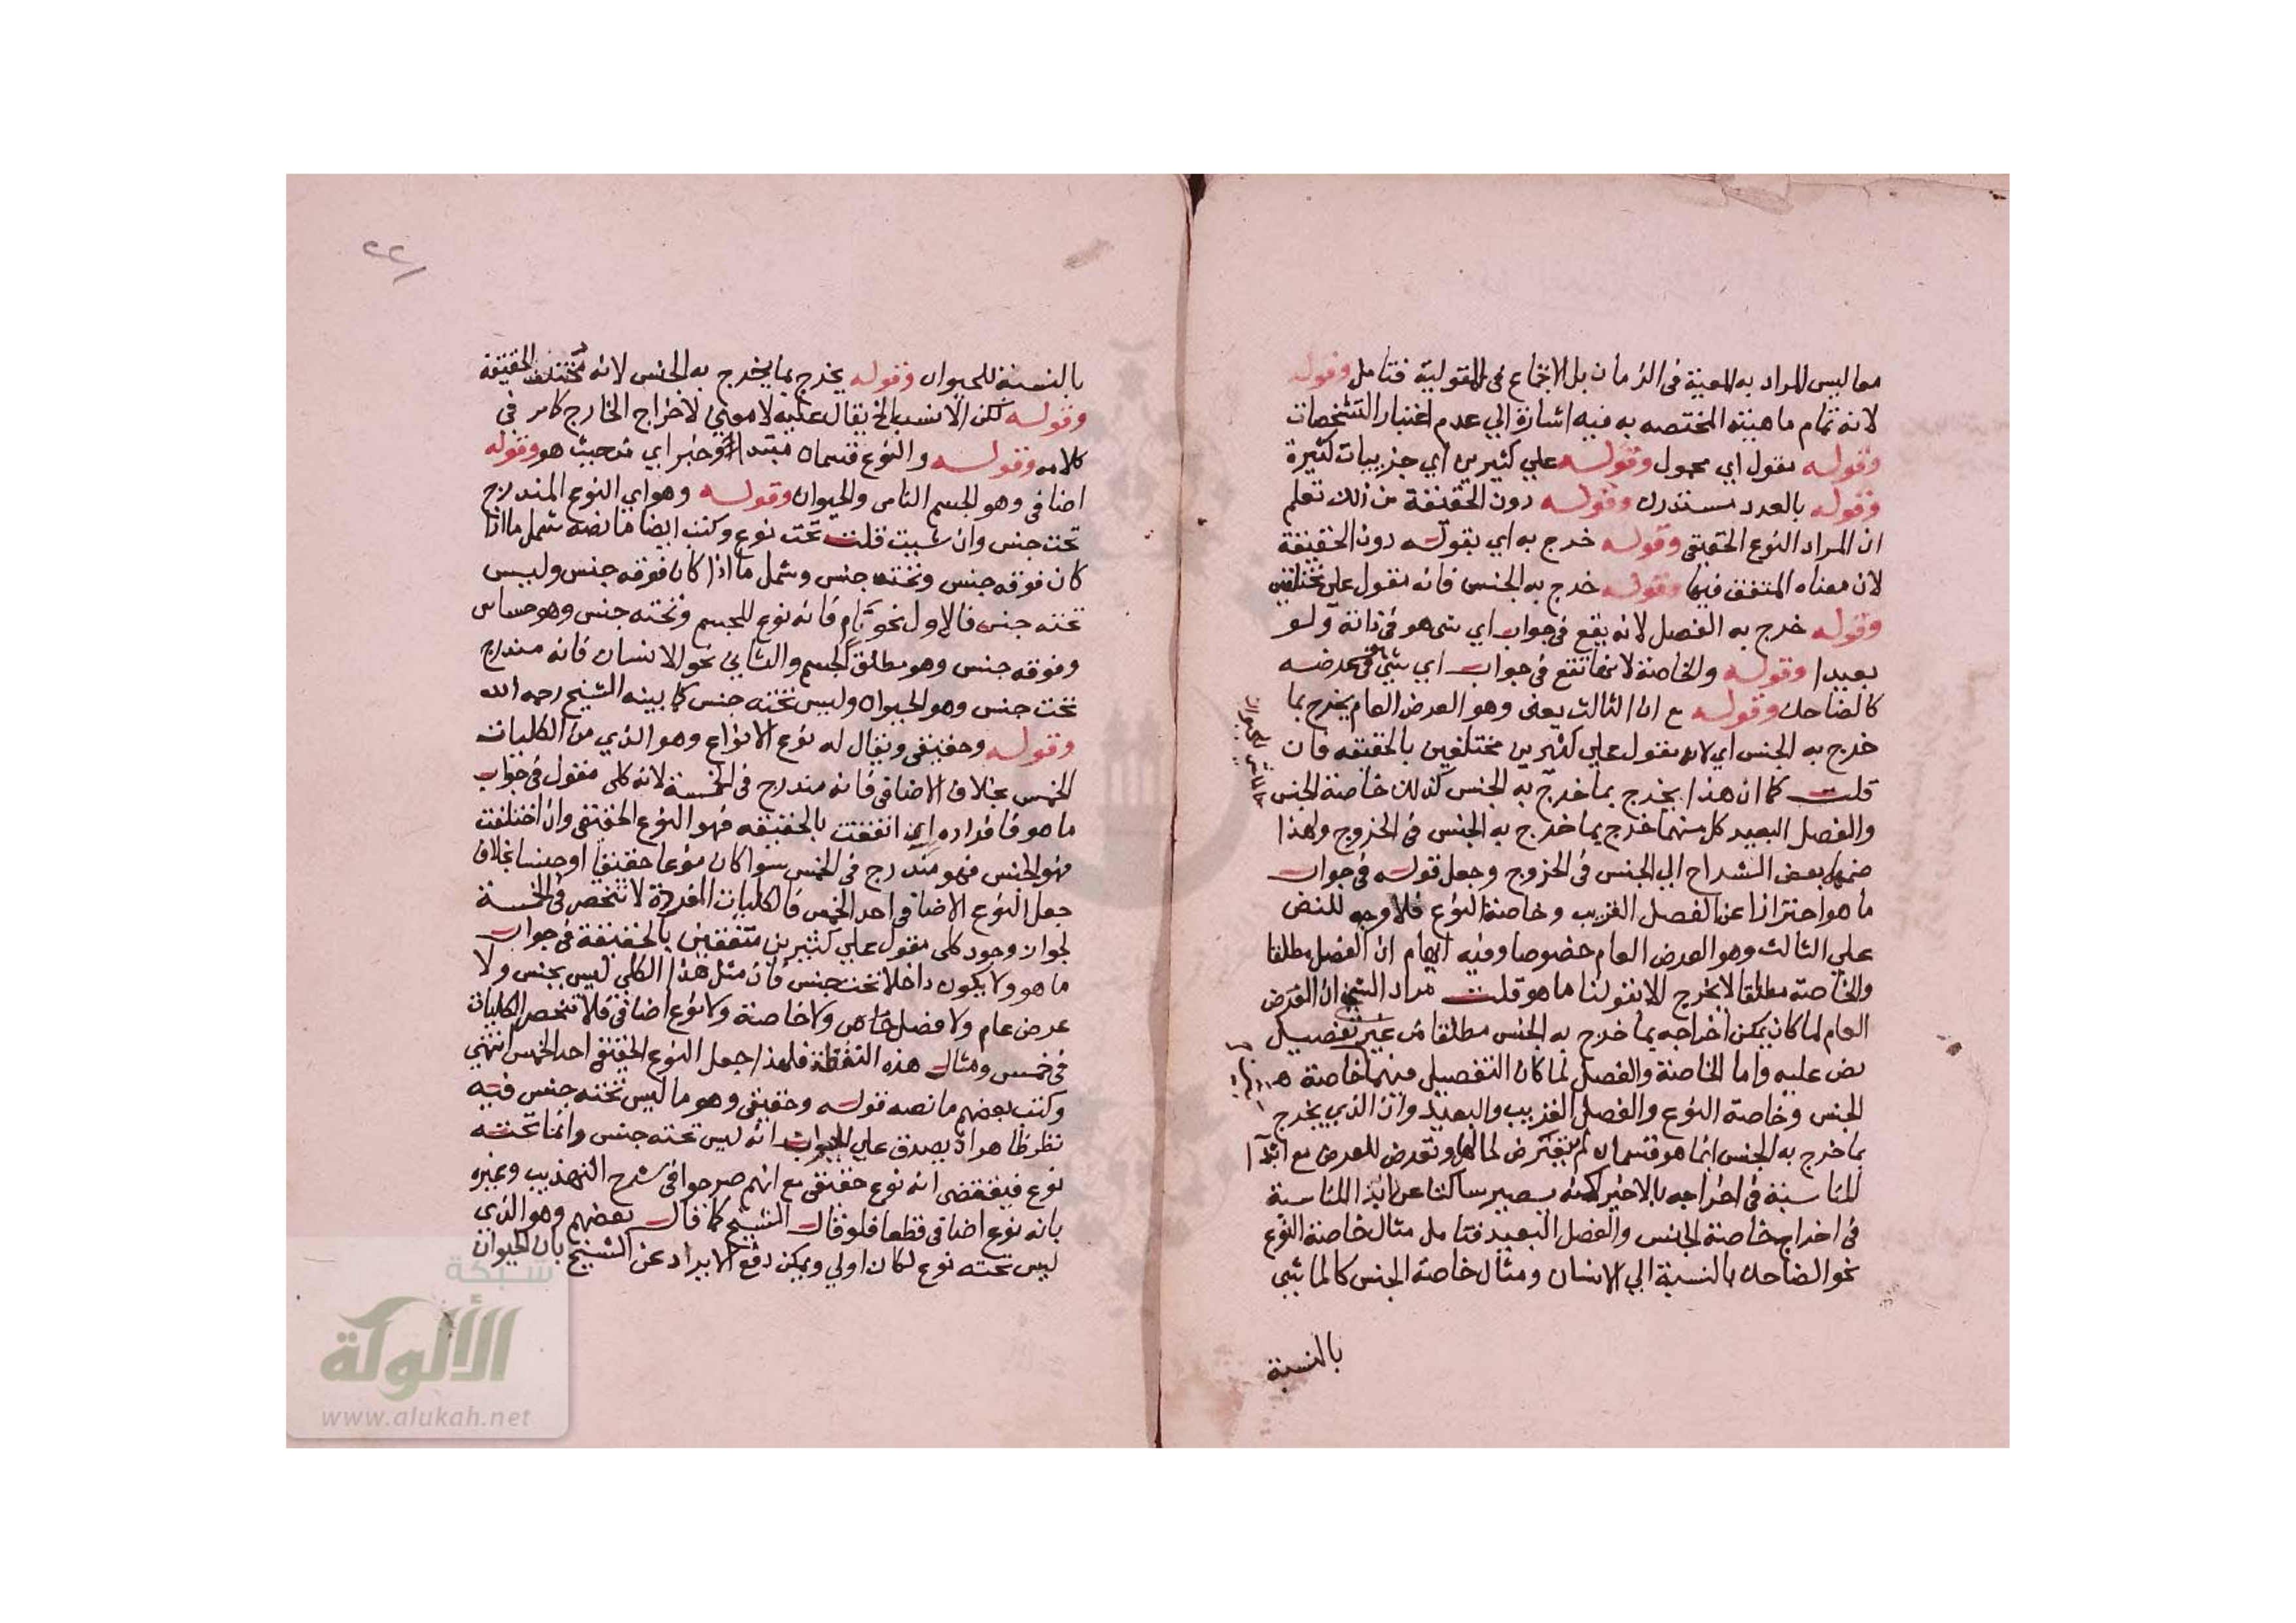 معا ليس المراد به المعية في الزمان بل الاجتماع في المقولية فتامل وقوله
لانه تمام ماهيته المختصه به فيه اشارة الي عدم اعتبار التشخصات
وقوله مقول اي محمول وقوله علي كثيرين اي جزييات كثيرة
وقوله بالعدد مستدرك وقوله دون الحقيقة من ذلك تعلم
ان المراد النوع الحقيقي وقوله خرج به اي بقوله دون الحقيقة
لان معناه المتفق فيها وقوله خرج به الجنس فانه مقول علي مختلفين
وقوله خرج به الفصل لانه يقع في جواب اي شي هو في ذاته ولو
بعيدا وقوله والخاصة لانها تقع في جواب اي شي في عرضه
كالضاحك وقوله مع ان الثالث يعني وهو العرض العام يخرج بما
خرج به الجنس اي لانه مقول علي كثيرين مختلفين بالحقيقه فان
قلت كما ان هذا يخرج بما خرج به الجنس كذلك خاصة الجنس
كالماشي للحيوان
والفصل البعيد كل منهما خرج بما خرج به الجنس في الخروج ولهذا
ضمها بعض الشراح الي الجنس في الخروج وجعل قوله في جواب
ما هو احترازا عن الفصل القريب وخاصة النوع فلا وجه للنص
علي الثالث وهو العرض العام خصوصا وفيه ايهام ان الفصل مطلقا
والخاصة مطلقا لا يخرج الا بقولنا ما هو قلت مراد الشيخ ان العرض
العام لما كان يمكن اخراجه بما خرج به الجنس مطلقا من غير تفصيل
نص عليه واما الخاصة والفصل لما كان التفصيل فيهما خاصة
الجنس وخاصة النوع والفصل القريب والبعيد وان الذي يخرج
بما خرج به الجنس انما هو قسمان لم يتعرض لهما وتعرض للعرض مع ابدا
المناسبة في اخراجه بالاخير لكنه يصير ساكتا عن ابدا المناسبة
في اخراج خاصة الجنس والفصل البعيد فتامل مثال خاصة النوع
نحو الضاحك بالنسبة الي الانسان ومثال خاصة الجنس كالماشي
بالنسبة
٢٢
بالنسبة للحيوان وقوله يخرج بما يخرج به الجنس لانه مختلف الحقيقة
وقوله لكن الانسب الخ يقال عليه لا معني لاخراج الخارج كما مر في
كلامه وقوله والنوع قسمان مبتدا وخبر اي من حيث هو وقوله
اضافي وهو الجسم النامي والحيوان وقوله وهو اي النوع المندرج
تحت جنس وان شيت قلت تحت نوع وكتب ايضا ما نصه شمل ما اذا
كان فوقه جنس وتحته جنس وشمل ما اذا كان فوقه جنس وليس
تحته جنس فالاول نحو نام فانه نوع للجسم وتحته جنس وهو حساس
وفوقه جنس وهو مطلق الجسم والثاني نحو الانسان فانه مندرج
تحت جنس وهو الحيوان وليس تحته جنس كما بينه الشيخ رحمه الله
وقوله وحقيقي ويقال له نوع الانواع وهو الذي من الكليات
الخمس بخلاف الاضافي فانه مندرج في الخمسة لانه كلي مقول في جواب
ما هو فافراده ان اتفقت بالحقيقه فهو النوع الحقيقي وان اختلفت
فهو الجنس فهو مندرج في الخمس سوا كان نوعا حقيقيا او جنسا بخلاف
جعل النوع الاضافي احد الخمس فالكليات المفردة لا تنحصر في الخمسة
لجواز وجود كلي مقول علي كثيرين متفقين بالحقيقة في جواب
ما هو ولا يكون داخلا تحت جنس فان مثل هذا الكلي ليس بجنس ولا
عرض عام ولا فصل خاص ولا خاصة ولا نوع اضافي فلا تنحصر الكليات
في خمس ومثال هذه النقطة فلهذا جعل النوع الحقيقي احد الخمس انتهي
وكتب بعضهم ما نصه قوله وحقيقي وهو ما ليس تحته جنس فيه
نظر ظاهر اذ يصدق علي الحيوان انه ليس تحته جنس وانما تحته
نوع فيقتضي انه نوع حقيقي مع انهم صرحوا في شرح التهذيب وغيره
بانه نوع اضافي قطعا فلو قال الشيخ كما قال بعضهم وهو الذي
ليس تحته نوع لكان اولي ويمكن دفع الايراد عن الشيخ بان الحيوان
شبكة
الألوكة
www.alukah.net